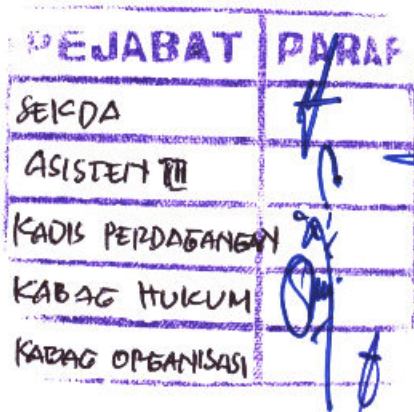 PEJABAT PARAF
SEKDA
ASISTEN III
KADIS PERDAGANGAN
KABAG HUKUM
KABAG ORGANISASI